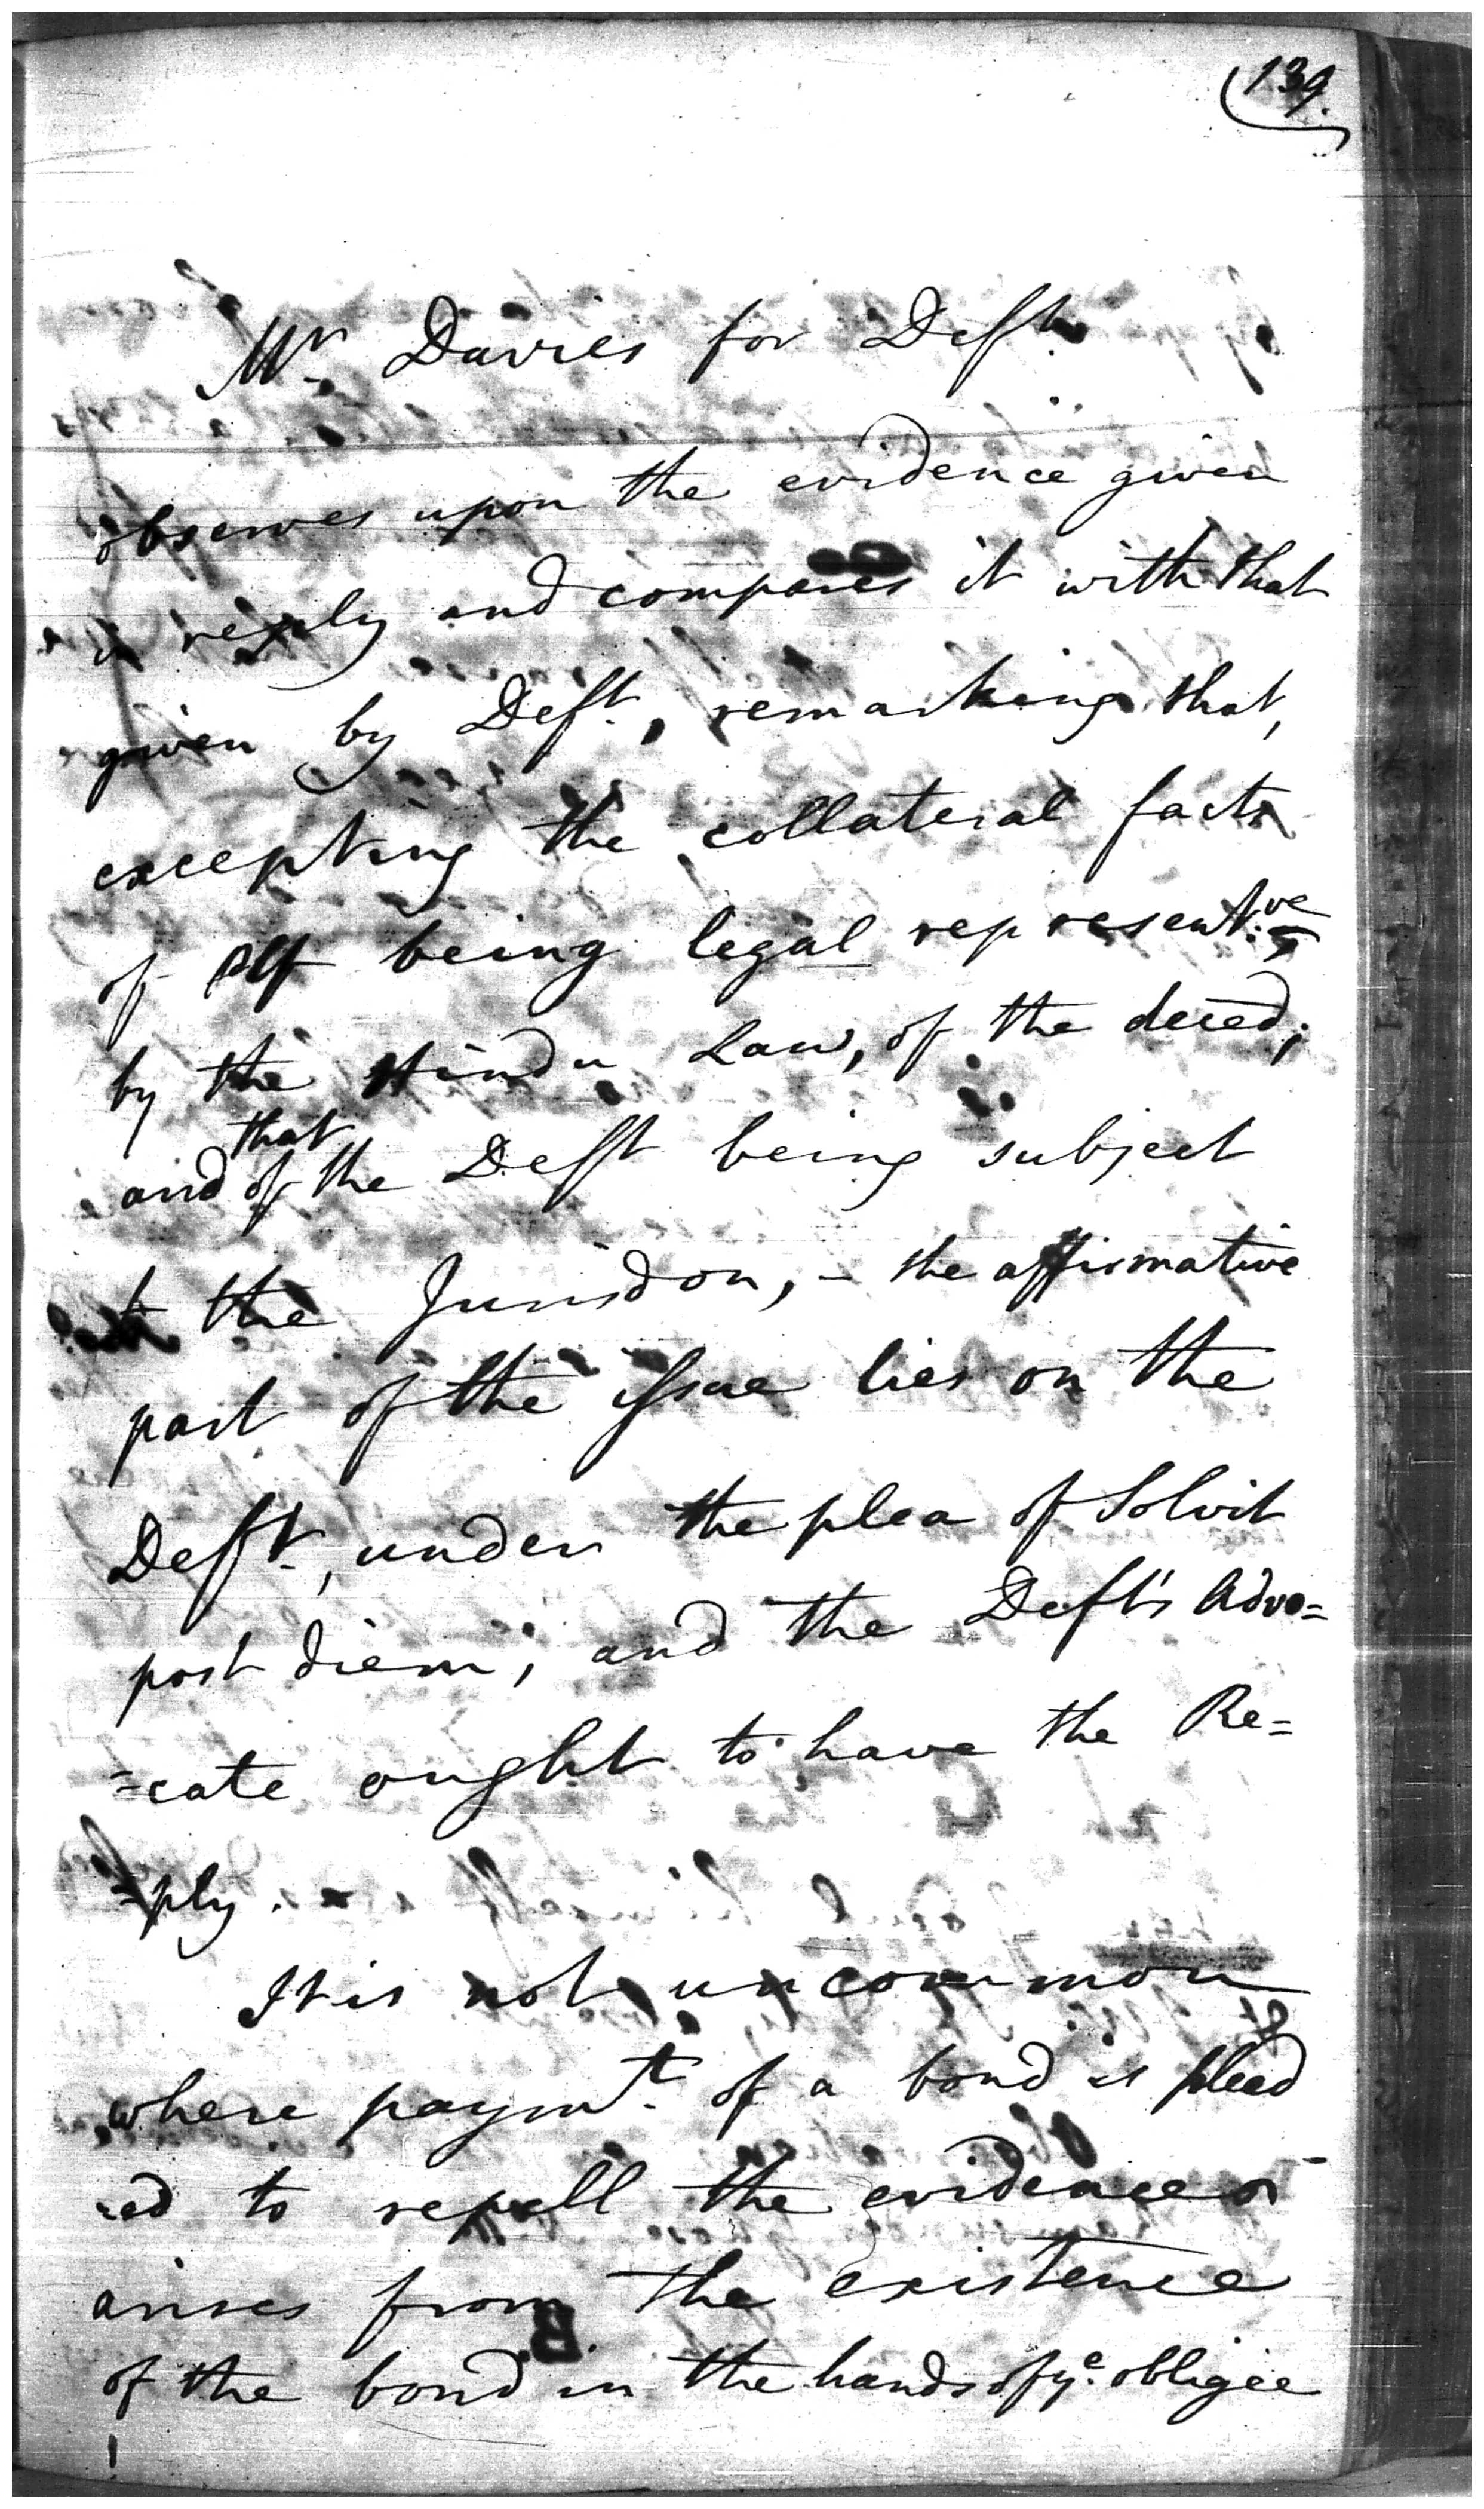 139.
Mr. Davies for Deft.
observes upon the evidence given
in reply and compares it with that
given by Deft., remarking that,
excepting the collateral facts
of Plf being legal represent.ve
by the Hindu Law, of the deced;
that
and of the Deft being subject
to the Jurisdon, - the affirmative
part of the issue lies on the
Deft., under the plea of Solvit
post diem; and the Deft's Advo=
=cate ought to have the Re=
=ply.
It is not uncommon
where paymt. of a bond is plead
=ed to repell the evidence
arises from the existence
of the bond in the hands of ye. obligee